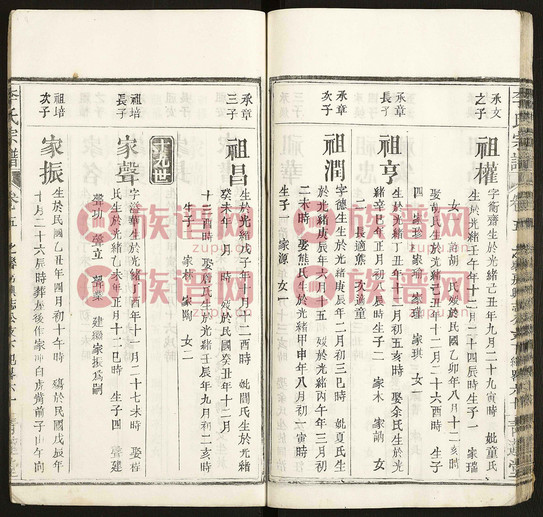 李氏宗譜
承文
之子
祖權
字衡齋生於光緒己丑年九月二十九寅時
妣童氏
生於光緒壬午年十二月二十四戌時
娶
胡氏
歿於民國乙卯年八月十二亥時
女一
承章
長子
祖亨
生於光緒丁丑年十月初五亥時
娶余氏生於光
緒辛巳年正月初八辰時生子二
家木
家訥
女
二
長適熊
次適童
承章
次子
祖潤
字德生生於光緒庚辰年二月初三巳時
妣夏氏生
歿於光緒丙午年三月初
二未時
娶熊氏生於光緒甲申年八月初三寅時
生子一
家源
女一
承章
三子
祖昌
生於光緒戊子年十月二十二酉時
妣闕氏生於光緒
癸未年二月
時
歿於民國癸丑年十二月
十二酉時
娶
氏生於光緒壬辰年九月初二亥時
生子二
家林
家陶
女二
十九世
祖培
長子
家聲
字
生於光緒丁酉年十月二十七未時
娶程
氏生於光緒乙未年正月十二巳時
生子四
聲建
聲功
聲立
建繼家振為嗣
祖培
次子
家振
生於民國乙丑年四月初十午時
歿於民國戊辰年
十月二十六辰時葬屋後作家
白虎
前子山午向
族谱网
zupu.cn
族谱网
zupu.cn